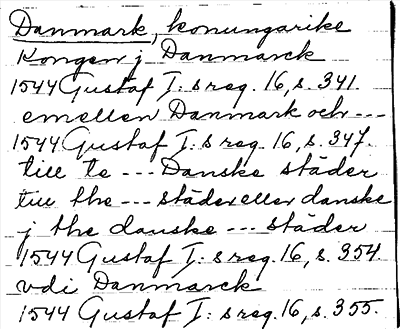 Danmark, konungarike
Kongen j Danmarck
1544 Gustaf I:s reg. 16, s. 341.
emellen Danmark och ---
1544 Gustaf I:s reg. 16, s. 347.
till te --- Danske städer
till the --- städer eller danske
j the danske --- städer
1544 Gustaf I:s reg. 16, s. 354.
vdi Danmarck
1544 Gustaf I:s reg. 16, s. 355.